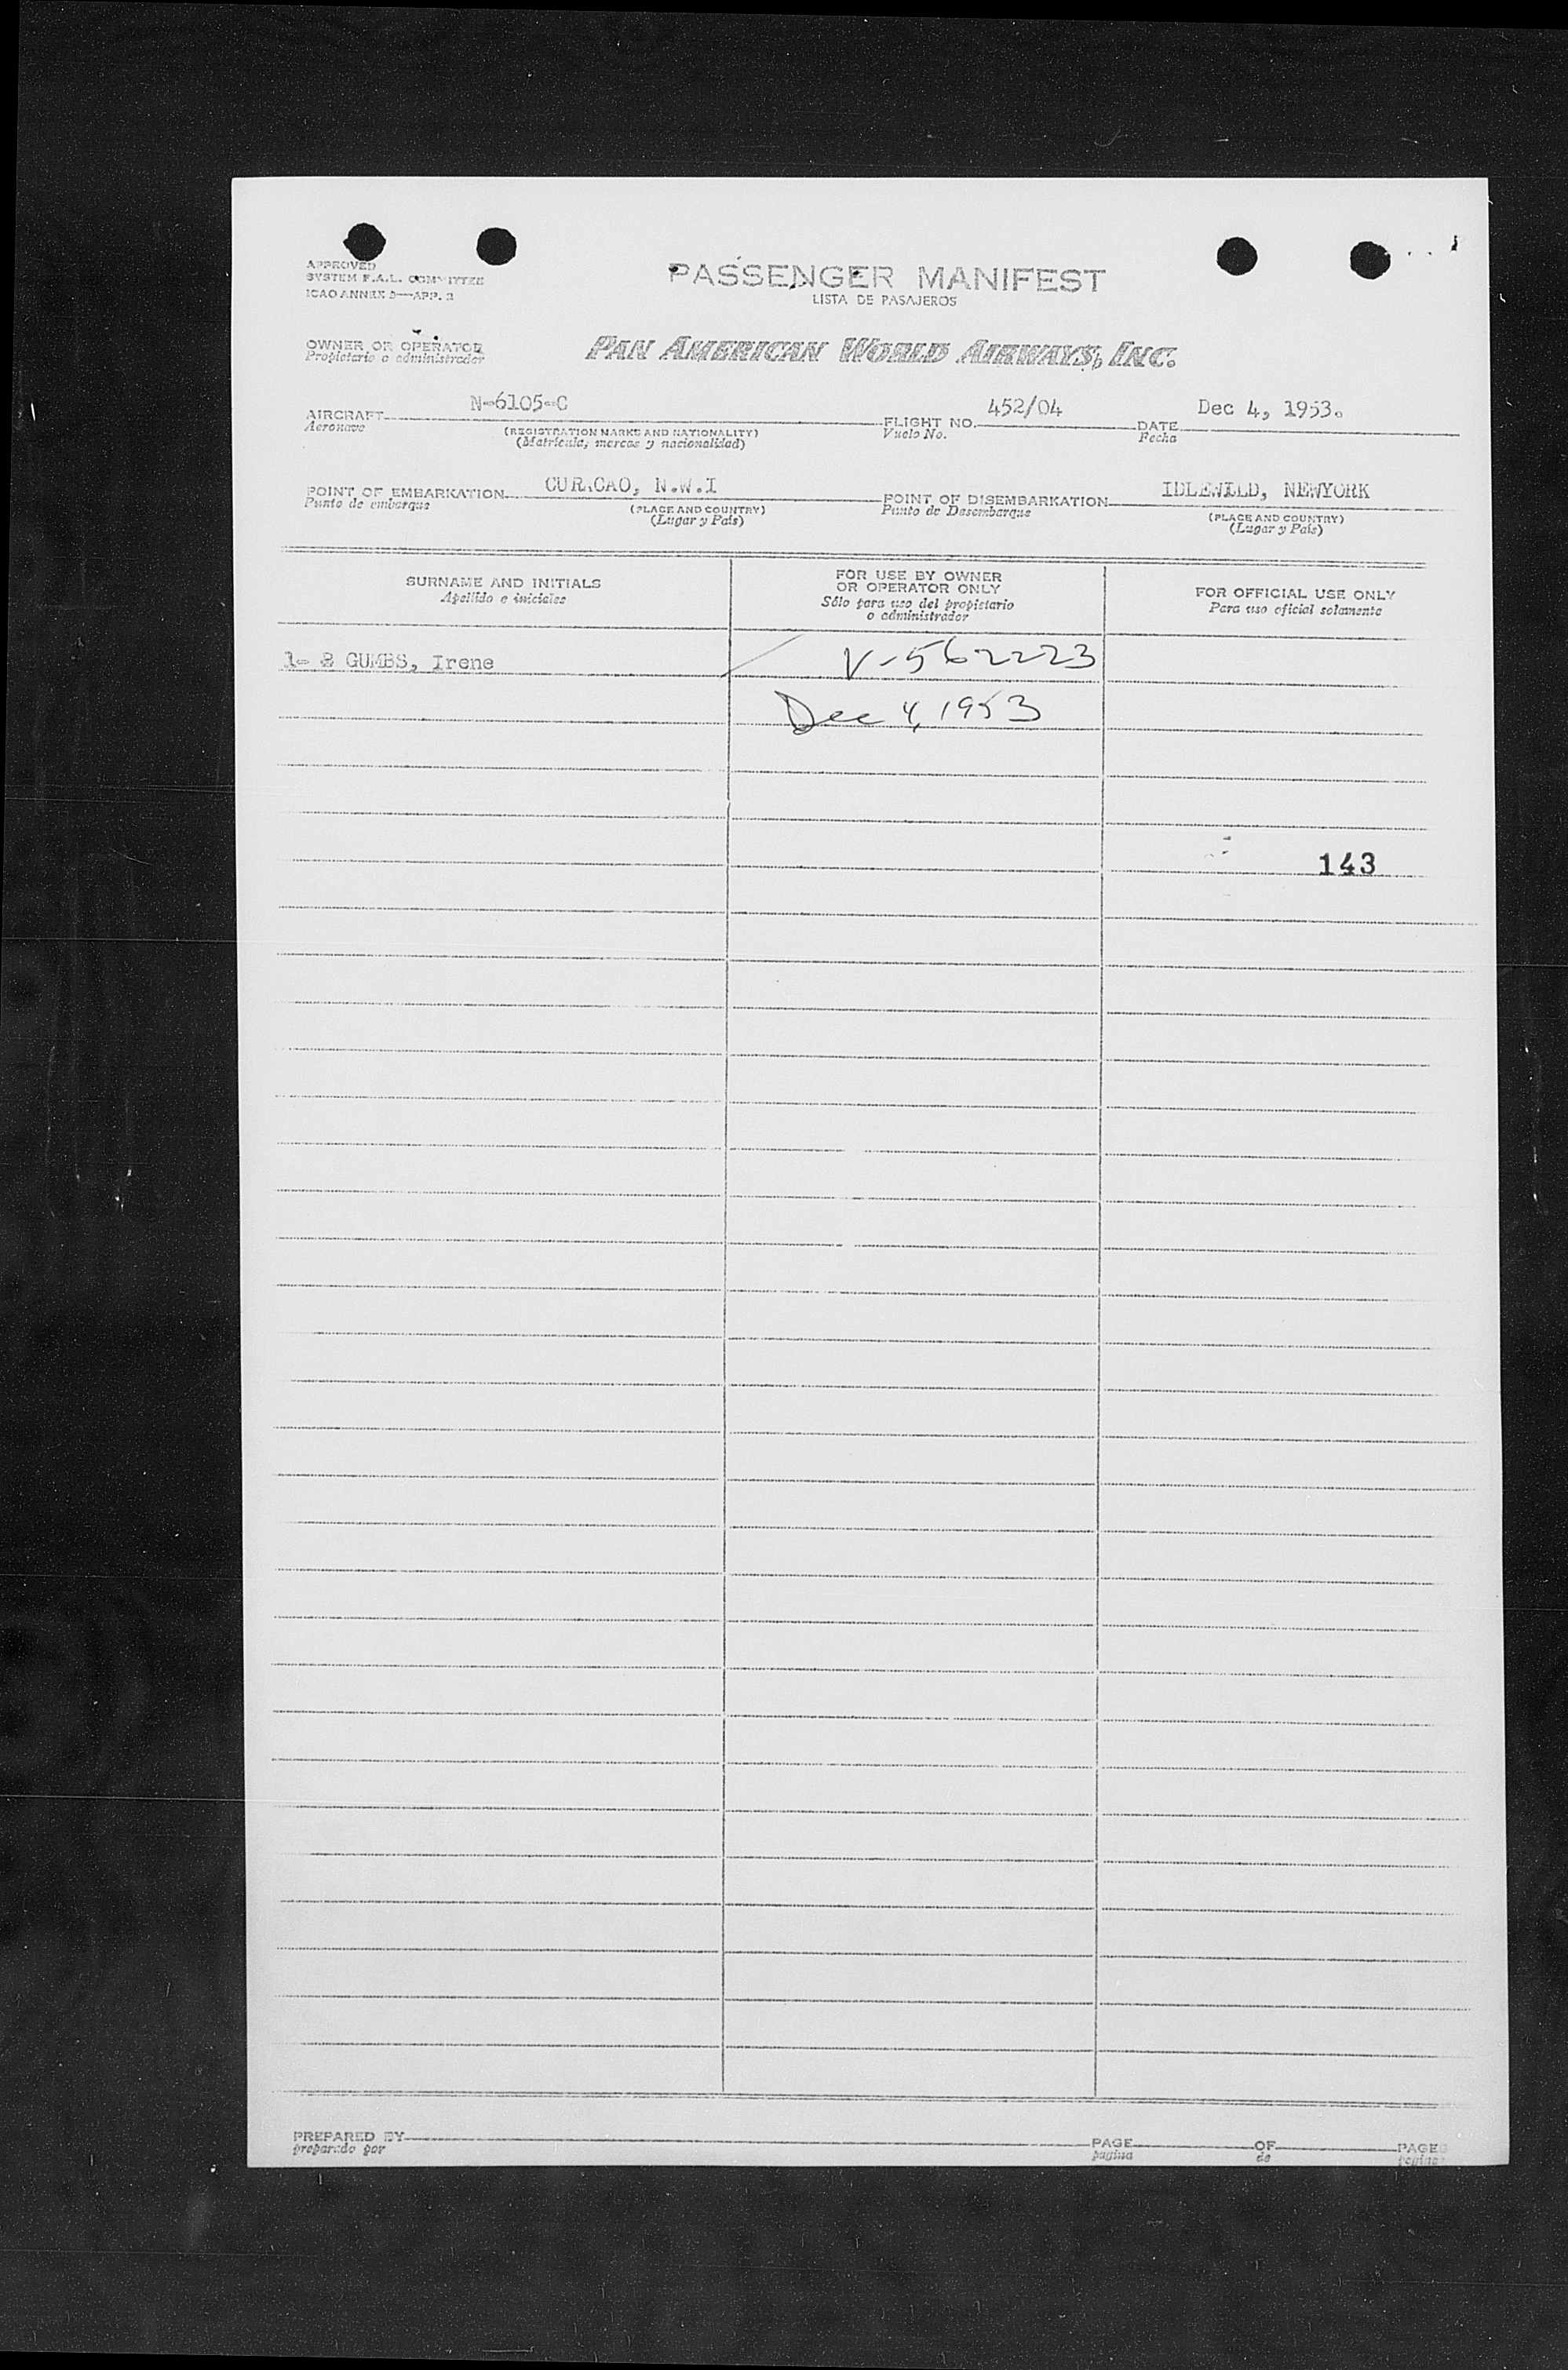 APPROVED
SYSTEM F.A.L. COMMITTEE
ICAO ANNEX 9—APP. 3
PASSENGER MANIFEST
LISTA DE PASAJEROS
OWNER OR OPERATOR
Propietario o administrador
PAN AMERICAN WORLD AIRWAYS, INC.
AIRCRAFT N-6105-C FLIGHT NO. 452/04 DATE Dec 4, 1953.
Aeronave (REGISTRATION MARKS AND NATIONALITY) Vuelo No. Fecha
(Matrícula, marcas y nacionalidad)
POINT OF EMBARKATION CURACAO, N.W.I POINT OF DISEMBARKATION IDLEWILD, NEWYORK
Punto de embarque (PLACE AND COUNTRY) Punto de Desembarque (PLACE AND COUNTRY)
(Lugar y País) (Lugar y País)
SURNAME AND INITIALS
Apellido e iniciales
FOR USE BY OWNER
OR OPERATOR ONLY
Sólo para uso del propietario
o administrador
FOR OFFICIAL USE ONLY
Para uso oficial solamente
1- GUMBS, Irene V-562223
Dec 4, 1953
143
PREPARED BY PAGE OF PAGES
preparado por pagina de paginas